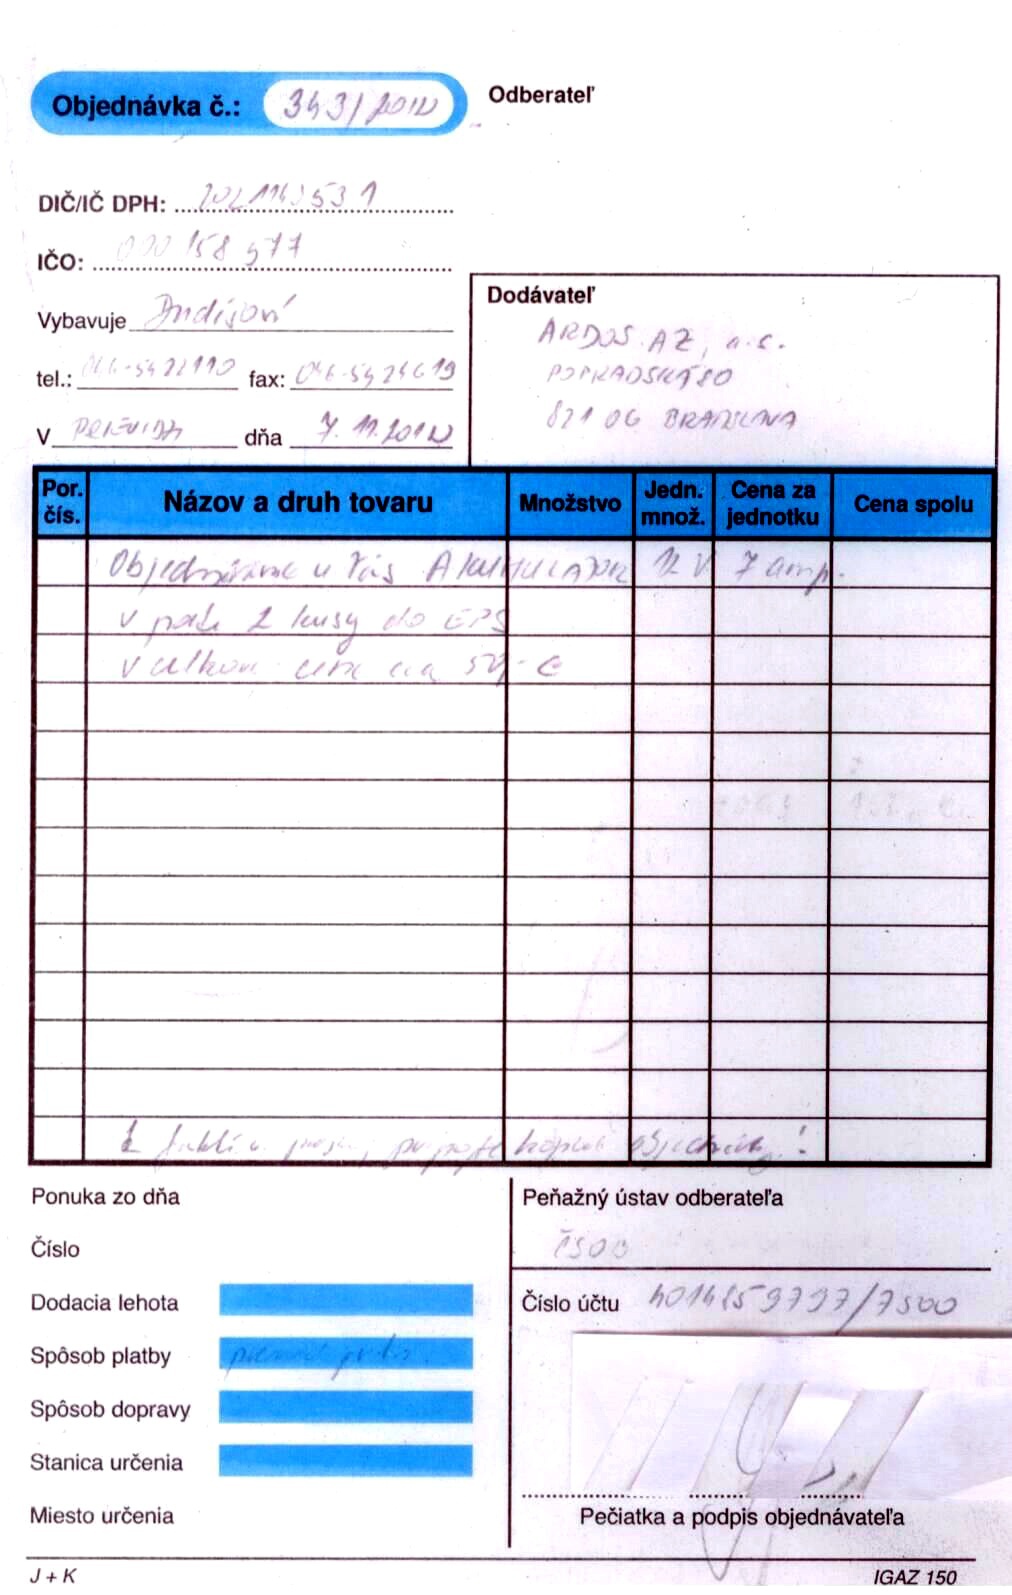 Objednávka č.: 343/2012
Odberateľ
DIČ/IČ DPH: 2021142531
IČO: 000158977
Dodávateľ
Vybavuje
ARDOS AZ, a.s.
tel.: 046-5422110 fax: 046-5424619
POPRADSKÁ 80
V PRIEVIDZI dňa 7.11.2012
821 06 BRATISLAVA
Por. čís. Názov a druh tovaru Množstvo Jedn. množ. Cena za jednotku Cena spolu
Objednávame u Vás AKUMULÁTOR 12 V 7 amp.
v počte 2 kusy do EPS
v celkovej cene cca €
kópiu objednávky!
Ponuka zo dňa
Peňažný ústav odberateľa
Číslo
ČSOB
Dodacia lehota
Číslo účtu 4014859797/7500
Spôsob platby
Spôsob dopravy
Stanica určenia
Miesto určenia
Pečiatka a podpis objednávateľa
J + K
IGAZ 150